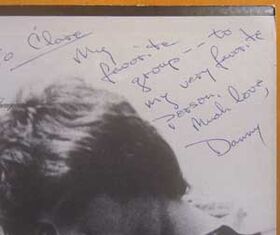 To Clare
My
favorite
group -- to
my very favorite
person.
Much love,
Danny